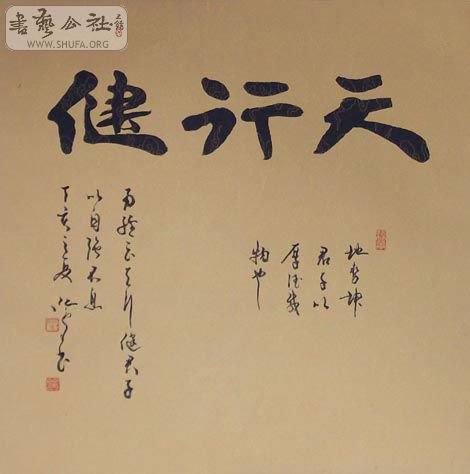 書藝公社
WWW.SHUFA.ORG
天行健
地势坤
君子以
厚德载
物也
易經云天行健君子
以自强不息
丁亥之夏 书